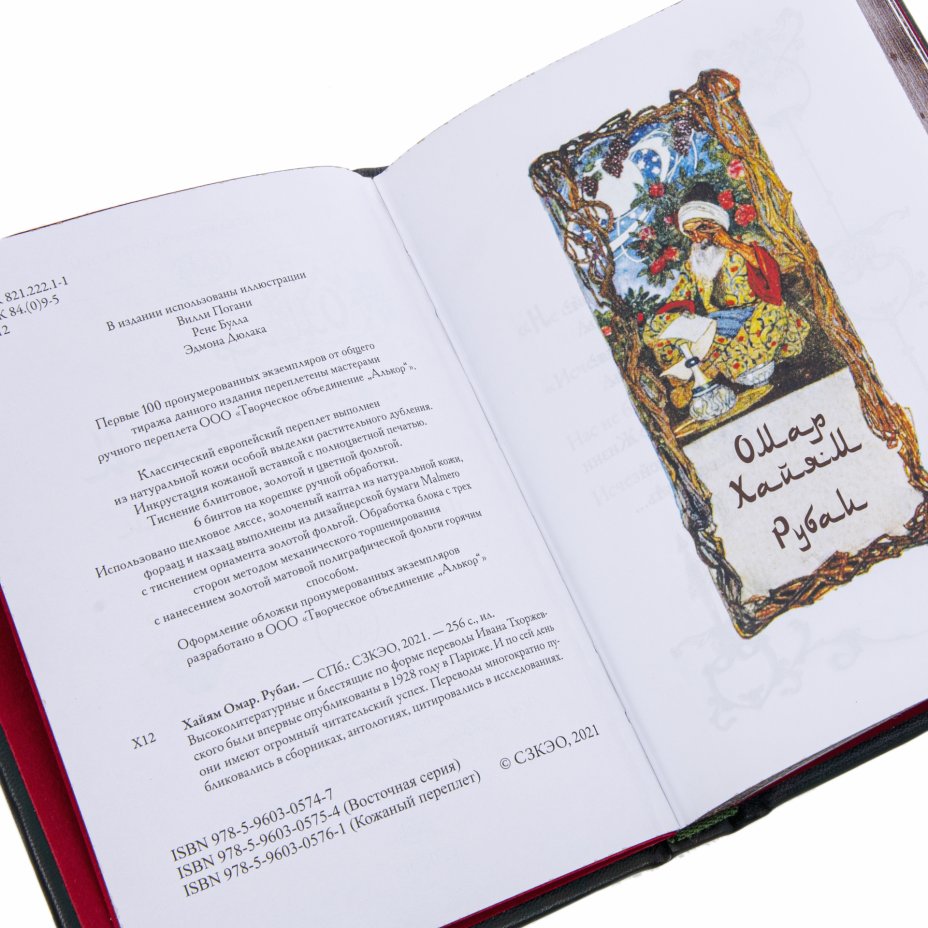 821.222.1-1
84.(0)9-5
12
В издании использованы иллюстрации
Вилли Погани
Рене Булла
Эдмона Дюлака
Первые 100 пронумерованных экземпляров от общего
тиража данного издания переплетены мастерами
ручного переплета ООО «Творческое объединение „Алькор“»,
Классический европейский переплет выполнен
из натуральной кожи особой выделки растительного дубления.
Инкрустация кожаной вставкой с полноцветной печатью.
Тиснение блинтовое, золотой и цветной фольгой.
6 бинтов на корешке ручной обработки.
Использовано шелковое ляссе, золоченый каптал из натуральной кожи,
форзац и нахзац выполнены из дизайнерской бумаги Malmero
с тиснением орнамента золотой фольгой. Обработка блока с трех
сторон методом механического торшенирования
с нанесением золотой матовой полиграфической фольги горячим
способом.
Оформление обложки пронумерованных экземпляров
разработано в ООО «Творческое объединение „Алькор“»
Хайям Омар. Рубаи. — СПб.: СЗКЭО, 2021. — 256 с., ил.
Х12 Высоколитературные и блестящие по форме переводы Ивана Тхоржев-
ского были впервые опубликованы в 1928 году в Париже. И по сей день
они имеют огромный читательский успех. Переводы многократно пу-
бликовались в сборниках, антологиях, цитировались в исследованиях.
© СЗКЭО, 2021
ISBN 978-5-9603-0574-7
ISBN 978-5-9603-0575-4 (Восточная серия)
ISBN 978-5-9603-0576-1 (Кожаный переплет)
Омар
Хайям
Рубаи